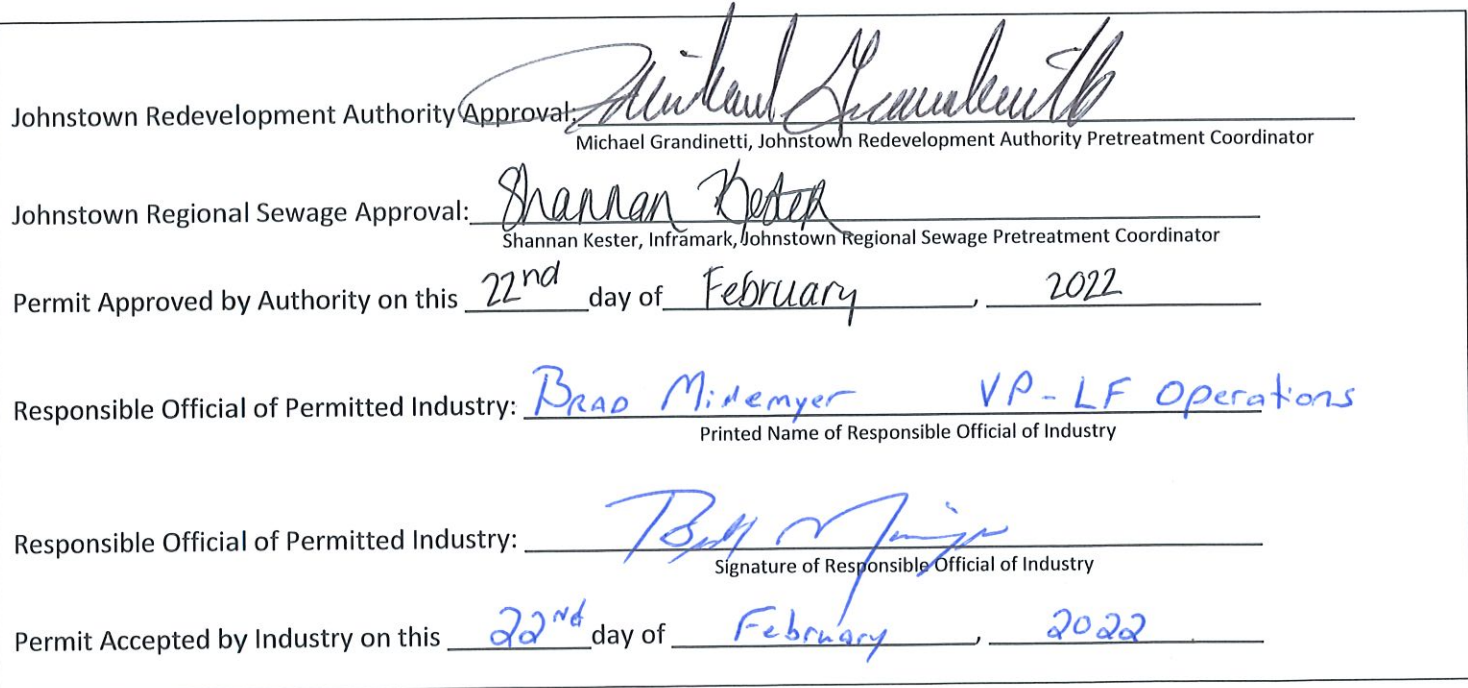 Johnstown Redevelopment Authority Approval:
Michael Grandinetti, Johnstown Redevelopment Authority Pretreatment Coordinator
Johnstown Regional Sewage Approval: Shannan Kester
Shannan Kester, Inframark, Johnstown Regional Sewage Pretreatment Coordinator
Permit Approved by Authority on this 22nd day of February, 2022
Responsible Official of Permitted Industry: BRAD Minemyer VP - LF Operations
Printed Name of Responsible Official of Industry
Responsible Official of Permitted Industry:
Signature of Responsible Official of Industry
Permit Accepted by Industry on this 22nd day of February, 2022